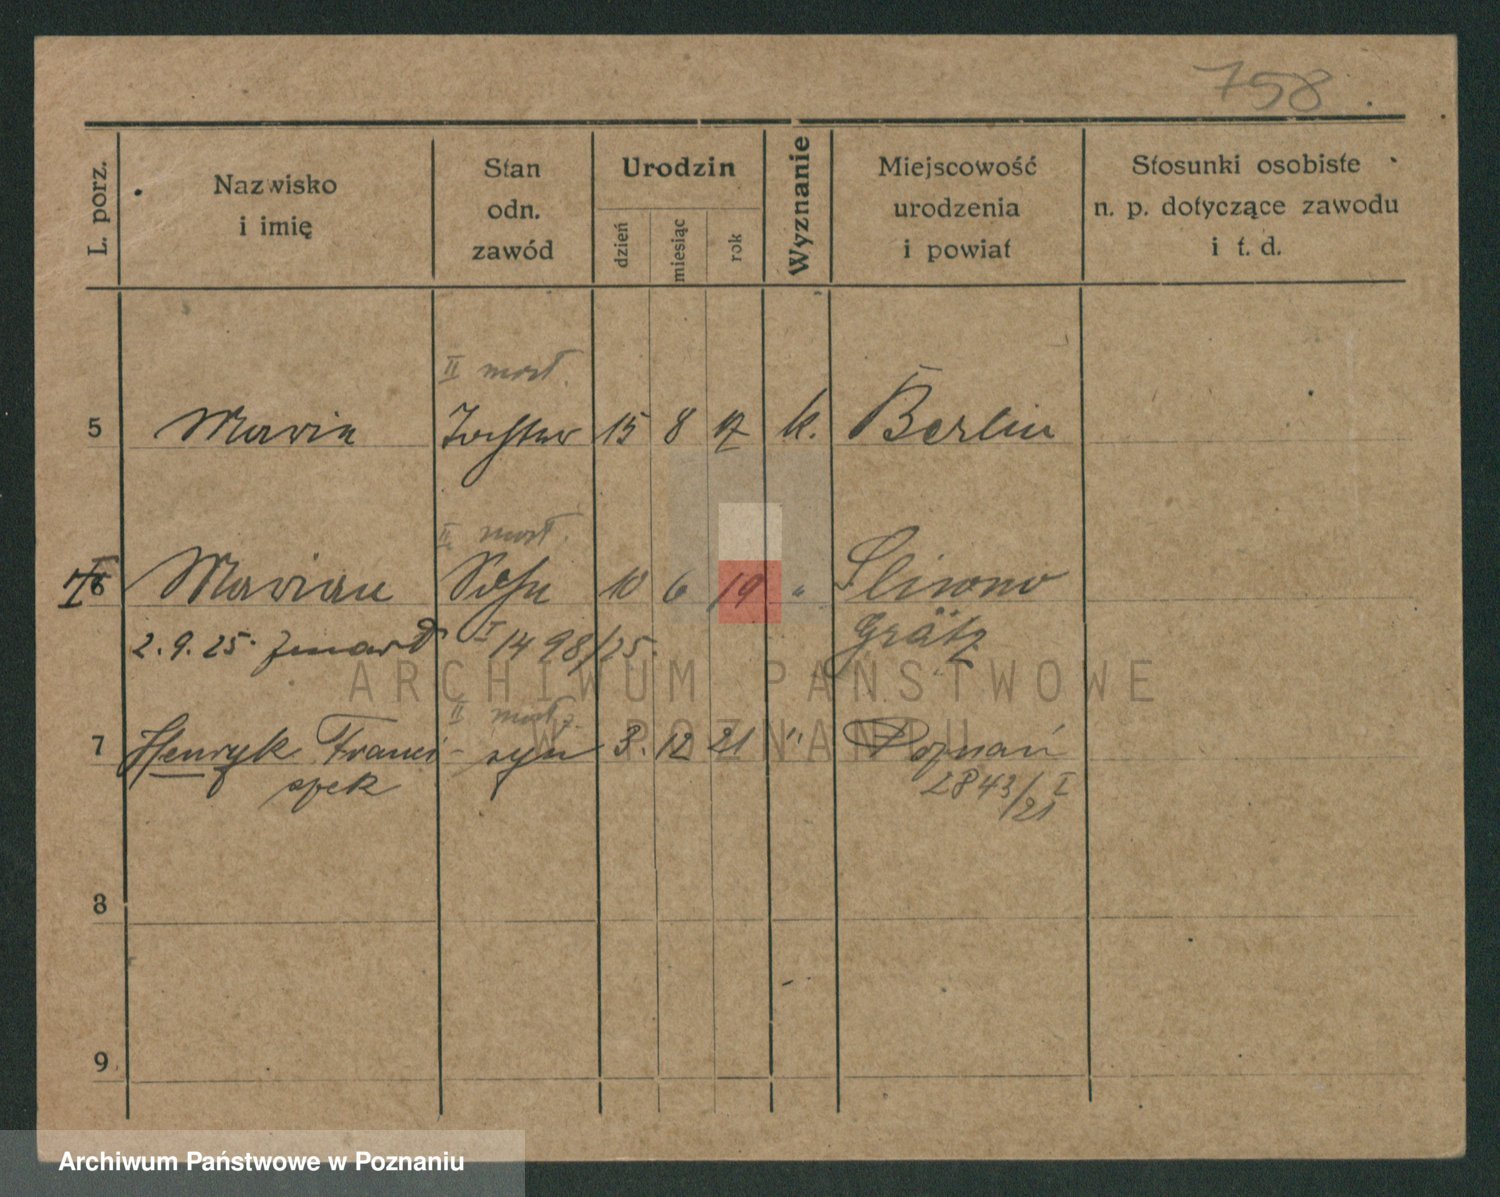 758
L. porz.
Nazwisko
i imię
Stan
odn.
zawód
Urodzin
dzień
miesiąc
rok
Wyznanie
Miejscowość
urodzenia
i powiat
Stosunki osobiste
n. p. dotyczące zawodu
i t. d.
II
5 Marie Tochter 15 8 17 k. Berlin
II
6 Marian Sohn 10 6 19 " Sliwno
2.9.25. zmarł I 1498/25. Grätz
II
7 Henryk Franci- syn 3. 12 21 " Poznań
szek 2843/21 I
8
9
ARCHIWUM PAŃSTWOWE
W POZNANIU
Archiwum Państwowe w Poznaniu